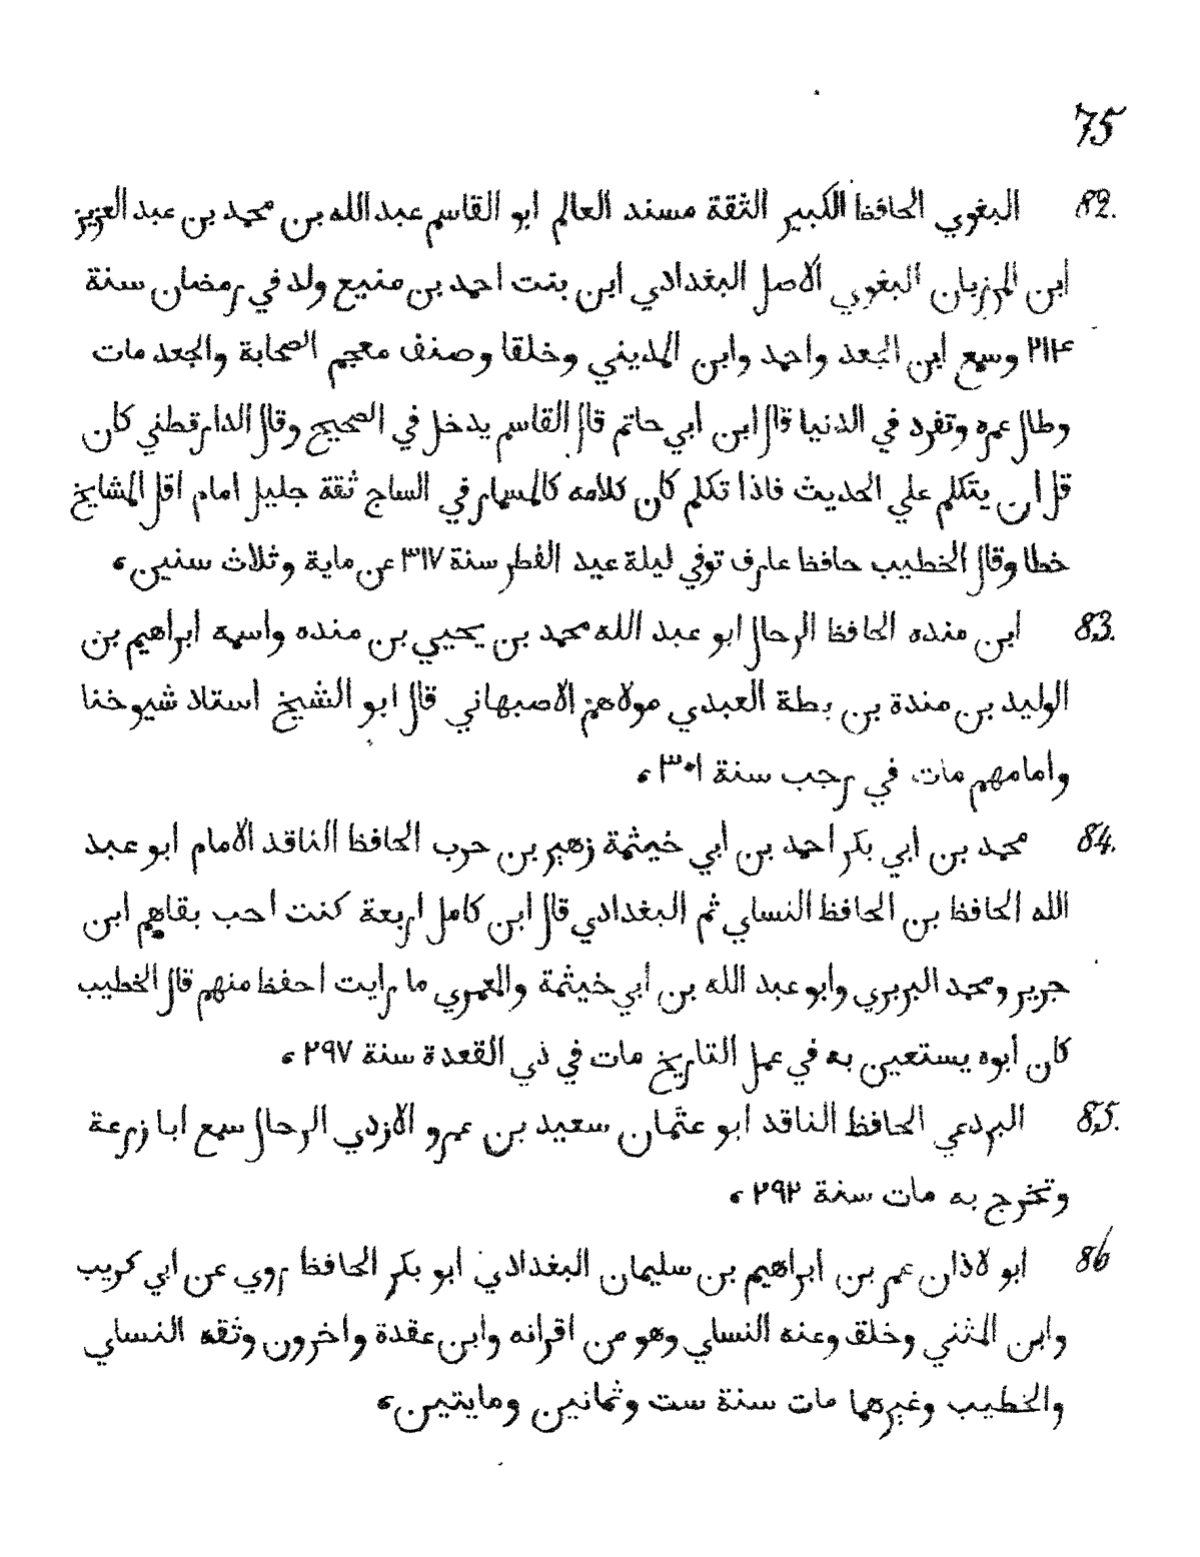 75
82. البغوي الحافظ الكبير الثقة مسند العالم ابو القاسم عبد الله بن محمد بن عبد العزيز
ابن المرزبان البغوي الاصل البغدادي ابن بنت احمد بن منيع ولد في رمضان سنة
٢١۴ وسمع ابن الجعد واحمد وابن المديني وخلقا وصنف معجم الصحابة والجعد مات
وطال عمره وتفرد في الدنيا قال ابن ابي حاتم قال القاسم يدخل في الصحيح وقال الدارقطني كان
قل أن يتكلم علي الحديث فاذا تكلم كان كلامه كالمسمار في الساج ثقة جليل امام اقل المشايخ
خطا وقال الخطيب حافظا عارف توفي ليلة عيد الفطر سنة ٣١٧ عن ماية وثلاث سنين،
83. ابن منده الحافظ الرحال ابو عبد الله محمد بن يحيي بن منده واسمه ابراهيم بن
الوليد بن مندة بن بطة العبدي مولاهم الاصبهاني قال ابو الشيخ استلا شيوخنا
وامامهم مات في رجب سنة ٣٠١،
84. محمد بن ابي بكر احمد بن أبي خيثمة زهير بن حرب الحافظ الناقد الامام ابو عبد
الله الحافظ بن الحافظ النساي ثم البغدادي قال ابن كامل اربعة كنت احب بقاهم ابن
جرير ومحمد البربري وابو عبد الله بن أبي خيثمة والمعمري ما رايت احفظ منهم قال الخطيب
كان أبوه يستعين به في عمل التاريخ مات في ذي القعدة سنة ٢٩٧،
85. البردعي الحافظ الناقد ابو عثمان سعيد بن عمرو الازدي الرحال سمع ابا زرعة
وتخرج به مات سنة ٢٩٢،
86 ابو لاذان عمر بن ابراهيم بن سليمان البغدادي ابو بكر الحافظ روي عن ابي كريب
وابن المثني وخلق وعنه النساي وهو من اقرانه وابن عقدة واخرون وثقه النساي
والخطيب وغيرهما مات سنة ست وثمانين ومايتين،